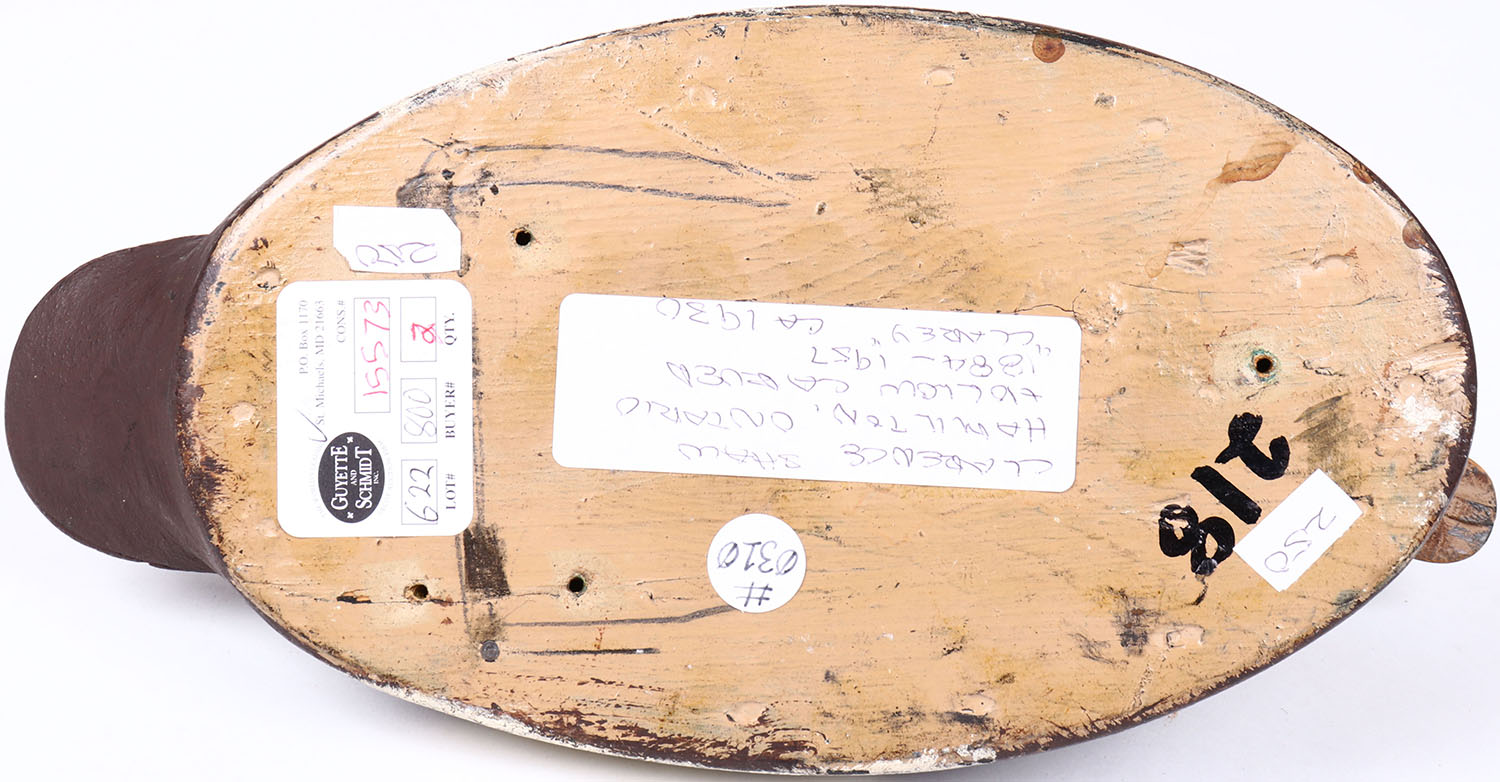 250
P.O. Box 1170
St. Michaels, MD 21663
CONS.#
15573
GUYETTE
AND
SCHMIDT
INC.
622
800
2
LOT#
BUYER#
QTY.
CLARENCE SHAW
HAMILTON, ONTARIO
HOLLOW CARVED
1884-1957
"CLAREY" CA 1930
#
0310
218
250